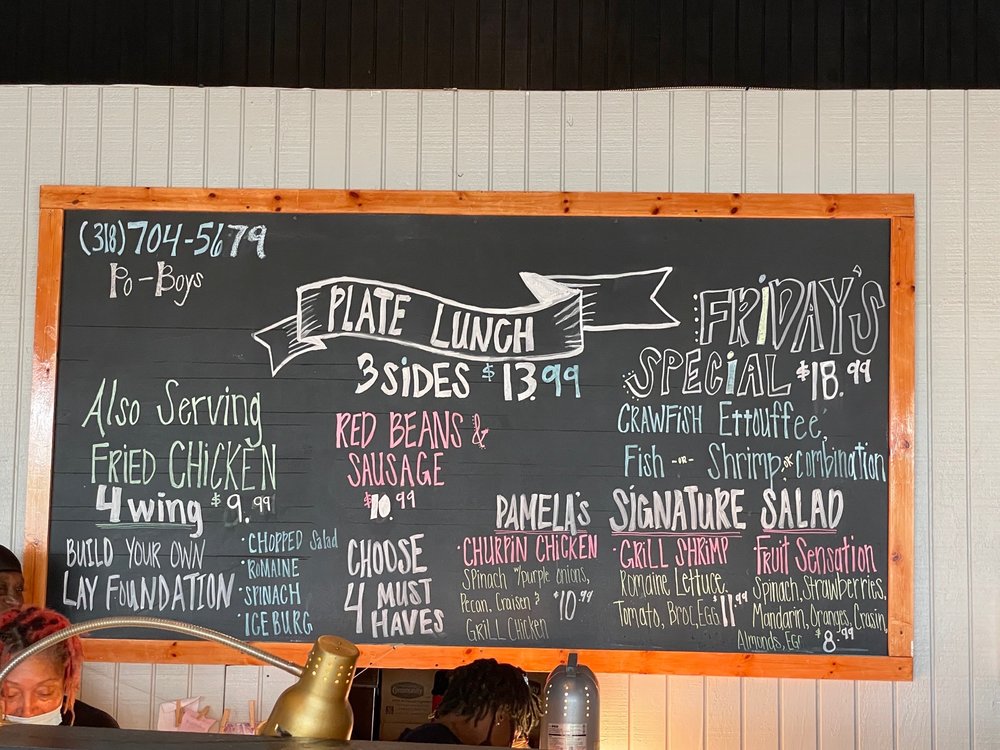 (318)704-5679
Po-Boys
PLATE LUNCH
3 SiDES $13.99
FRiDAY'S
SPECiAL $18.99
CRAWFISH ETTouffee,
Fish -or- Shrimp or combination
Also Serving
FRiED CHiCKEN
4 wing $9.99
RED BEANS &
SAUSAGE
$10.99
BUILD YOUR OWN
LAY FOUNDATION
• CHOPPED Salad
• ROMAINE
• SPINACH
• ICEBURG
CHOOSE
4 MUST
HAVES
PAMELA'S SiGNATURE SALAD
• CHURPIN CHICKEN
SPINACH w/purple onions,
Pecan, Craisen &
GRILL CHICKEN
$10.99
• GRILL SHRIMP
Romaine Lettuce,
Tomato, Broc, EGG $11.99
Fruit Sensation
Spinach, Strawberries,
Mandarin, Oranges, Crasin,
Almonds, EGG $8.99